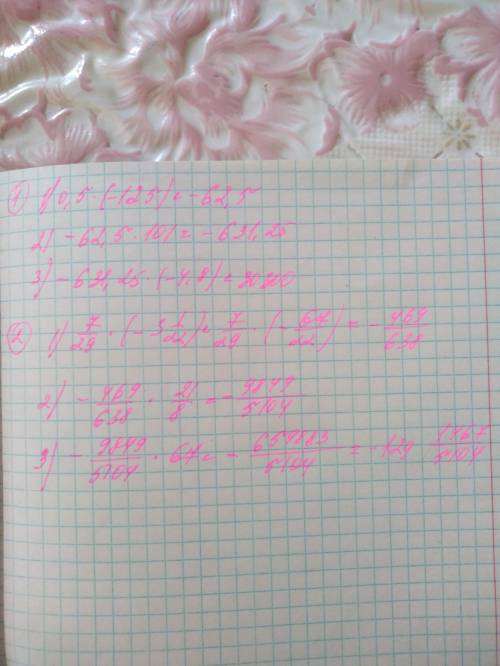 ① 1) 0,5 · (-125) = -62,5
2) -62,5 · 101 = -631,25
3) -631,25 · (-4,8) = 30300
② 1) 7/29 · (-3 1/22) = 7/29 · (-67/22) = -469/638
2) -469/638 · 21/8 = -9849/5104
3) -9849/5104 · 67 = -659883/5104 = -129 1467/5104